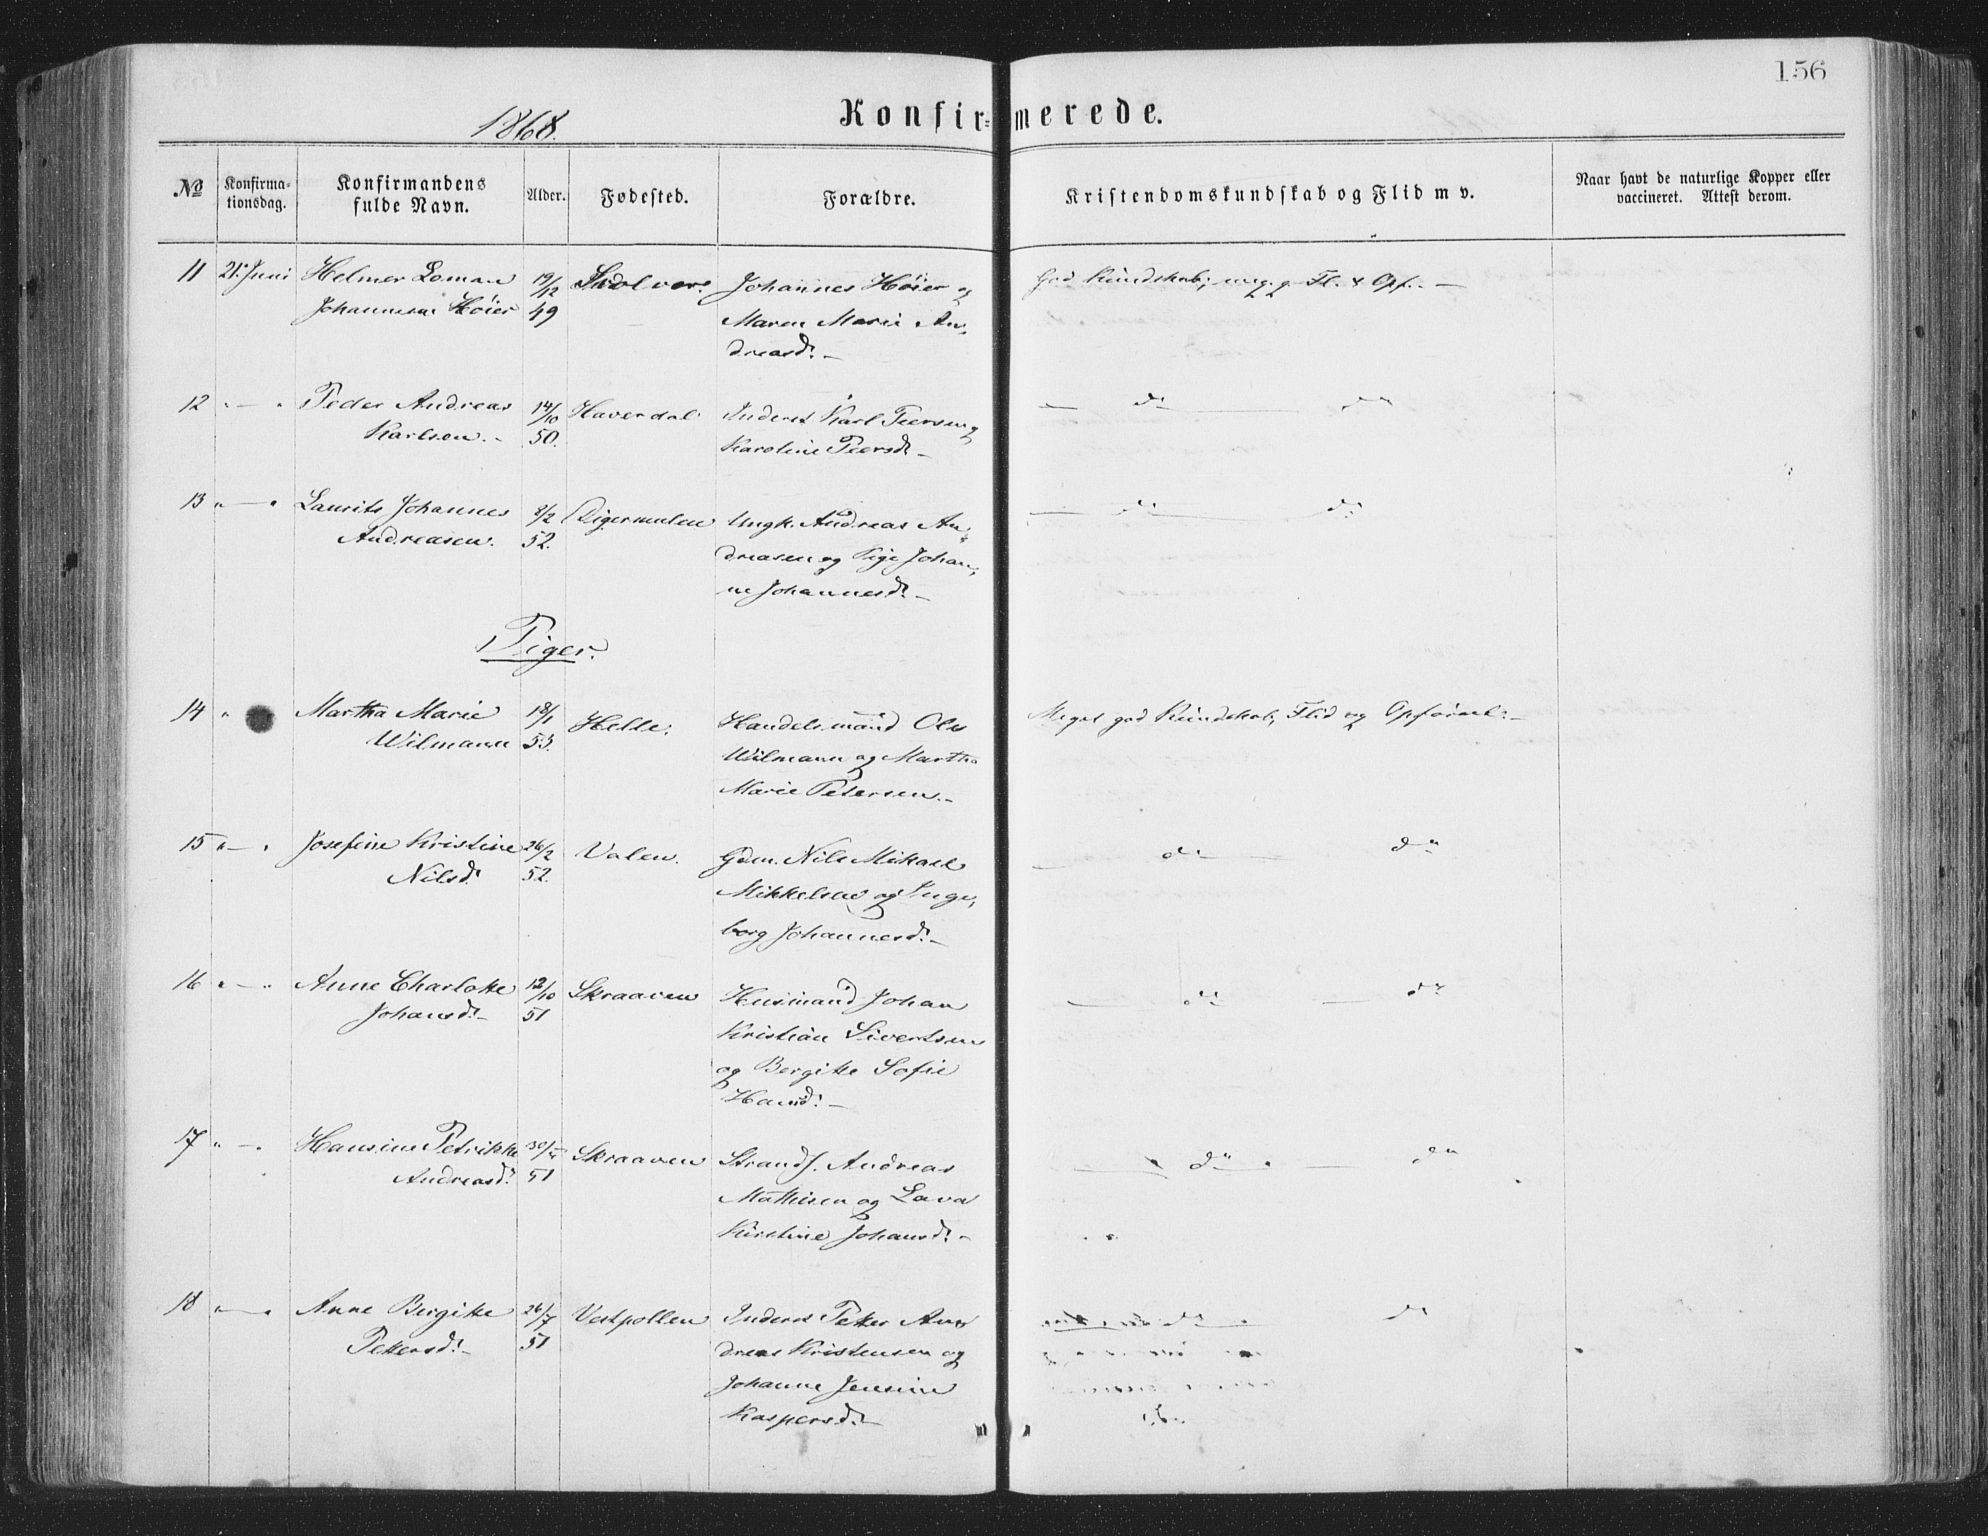 156
1868.
Konfirmerede.
№ Konfirmationsdag. Konfirmandens fulde Navn. Alder. Fødested. Forældre. Kristendomskundskab og Flid m v. Naar havt de naturlige Kopper eller vaccineret. Attest derom.
11 21. Juni Helmer Loman 19/12 Johannes Høier og God Kundskab; meg. g. Fl. & Opf. –
Johannesen Høier 49 Maren Marie An-
dreasd. –
12 " — " Peder Andreas 14/10 Haverdal Inderst Karl Peersen og — do do
Karlsen. – 50. Karoline Peersd. –
13 " — " Laurits Johannes 8/2 Digermulen Ungk. Andreas An- — do — do
Andreasen. 52. dreasen og Pige Johan-
ne Johannesd. –
Piger.
14 " Martha Marie 18/1 Helle. Handelsmand Ole Meget god Kundskab, Flid og Opførsel. –
Wilmann 53. Wilmann og Martha
Marie Petersen. –
15 " — " Josefine Kristine 26/2 Valen. Gdm. Nils Mikael — do — do
Nilsd. 52. Mikkelsen og Inge-
borg Johannesd. –
16 " — " Anne Charlotte 12/10 Skraaven Husmand Johan — do — do
Johansd. – 51 Kristian Sivertsen
og Bergitte Sofie
Hansd. –
17 " — " Hansine Petrikke Skraaven Strands. Andreas — do — do
Andreasd. 51 Mathisen og Lava
Kirstine Johansd. –
18 " — " Anne Bergitte 26/7 Vestpollen Inderst Petter An- — do do
Pettersd. – 51 dreas Kristensen og
Johanne Jensine
Kaspersd. –